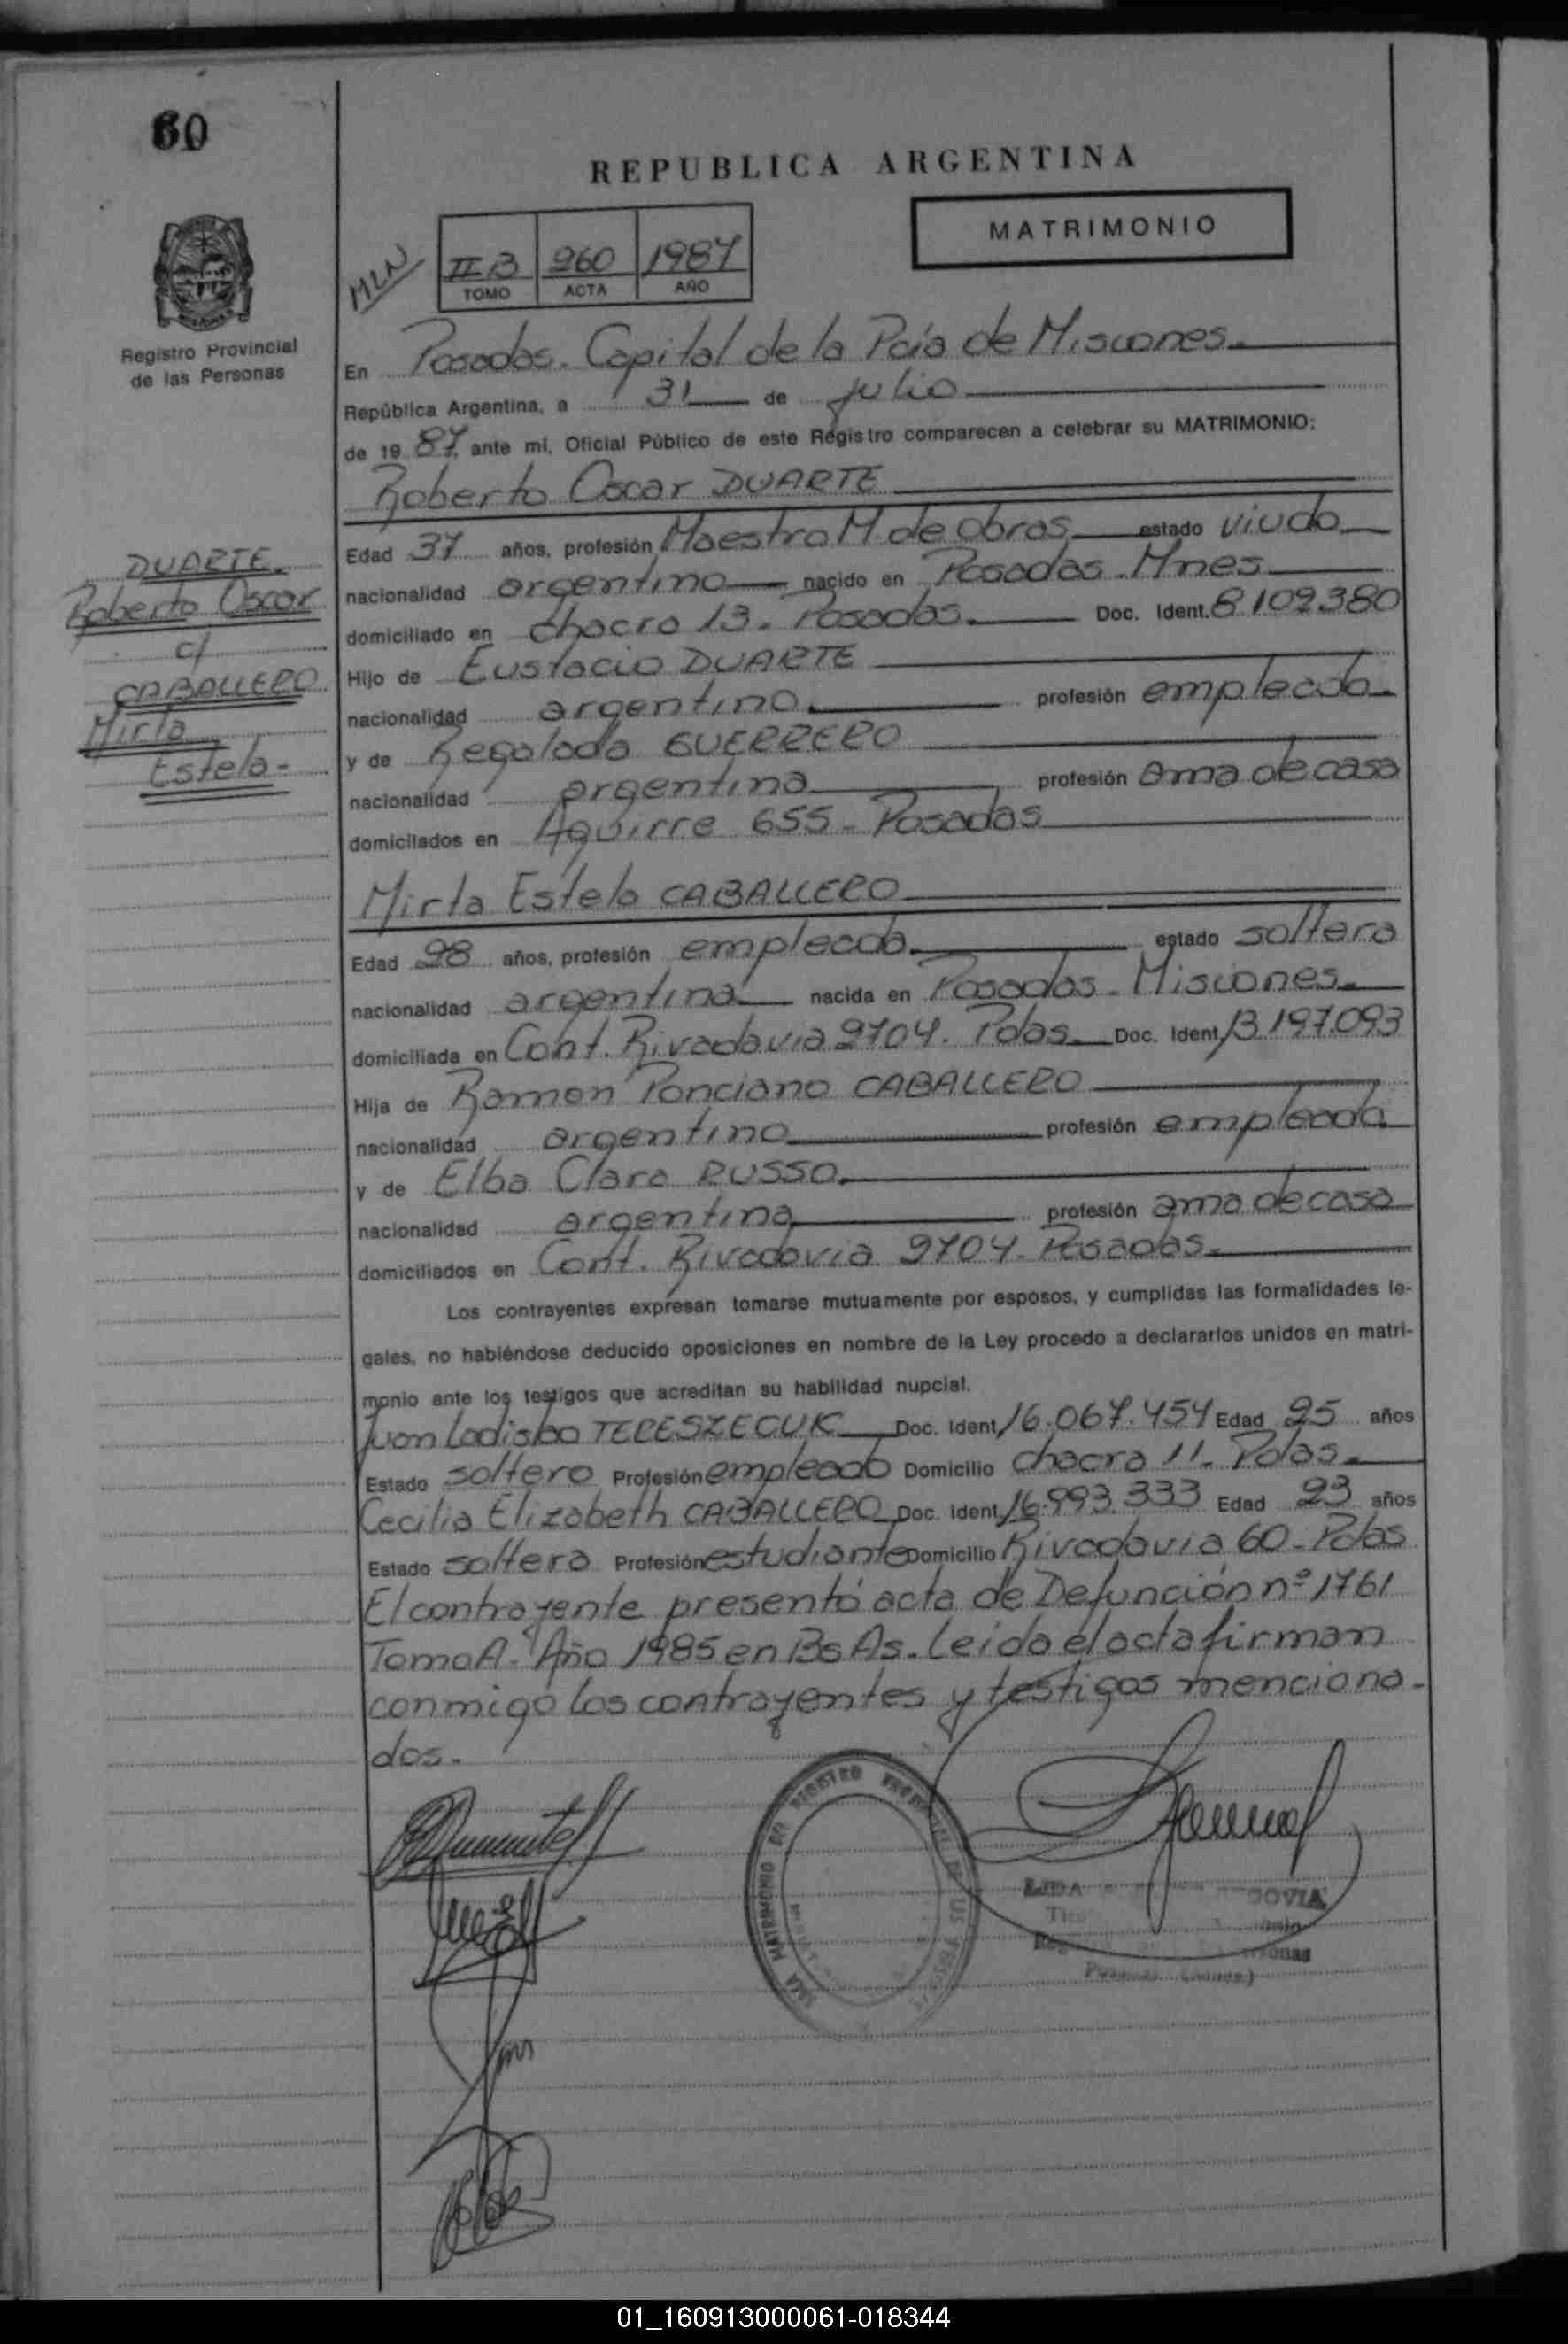 60
REPUBLICA ARGENTINA
MATRIMONIO
MLN
II B 260 1987
TOMO ACTA AÑO
Registro Provincial
de las Personas
En Posadas. Capital de la Pcia de Misiones.
República Argentina, a 31 de julio
de 19 87 ante mi, Oficial Público de este Registro comparecen a celebrar su MATRIMONIO:
Roberto Oscar DUARTE
Edad 37 años, profesión Maestro M. de Obras estado viudo
nacionalidad argentino nacido en Posadas. Mnes
domiciliado en chacra 13. Posadas. Doc. Ident. 8109380
Hijo de Eustacio DUARTE
nacionalidad argentino. profesión empleado.
y de Regalada GUERRERO
nacionalidad argentina profesión ama de casa
domiciliados en Aguirre 655 - Posadas
DUARTE.
Roberto Oscar
c/
CABALLERO
Mirta
Estela-
Mirta Estela CABALLERO
Edad 28 años, profesión empleada. estado soltera
nacionalidad argentina nacida en Posadas. Misiones.
domiciliada en Cont. Rivadavia 2704. Pdas. Doc. Ident. 13.197.093
Hija de Ramon Ponciano CABALLERO
nacionalidad argentino profesión empleado
y de Elba Clara RUSSO.
nacionalidad argentina profesión ama de casa
domiciliados en Cont. Rivadavia 2704. Posadas.
Los contrayentes expresan tomarse mutuamente por esposos, y cumplidas las formalidades le-
gales, no habiéndose deducido oposiciones en nombre de la Ley procedo a declararlos unidos en matri-
monio ante los testigos que acreditan su habilidad nupcial.
Juan Ladislao TERESZECUK Doc. Ident. 16.067.454 Edad 25 años
Estado soltero Profesión empleado Domicilio chacra 11. Pdas.
Cecilia Elizabeth CABALLERO Doc. Ident. 16.993.333 Edad 23 años
Estado soltera Profesión estudiante Domicilio Rivadavia 60 - Pdas
El contrayente presentó acta de Defunción nº 1761
Tomo A. Año 1985 en Bs As. Leida el acta firman
conmigo los contrayentes y testigos menciona-
dos.
MATRIMONIO DEL REGISTRO
LIDA
01_160913000061-018344